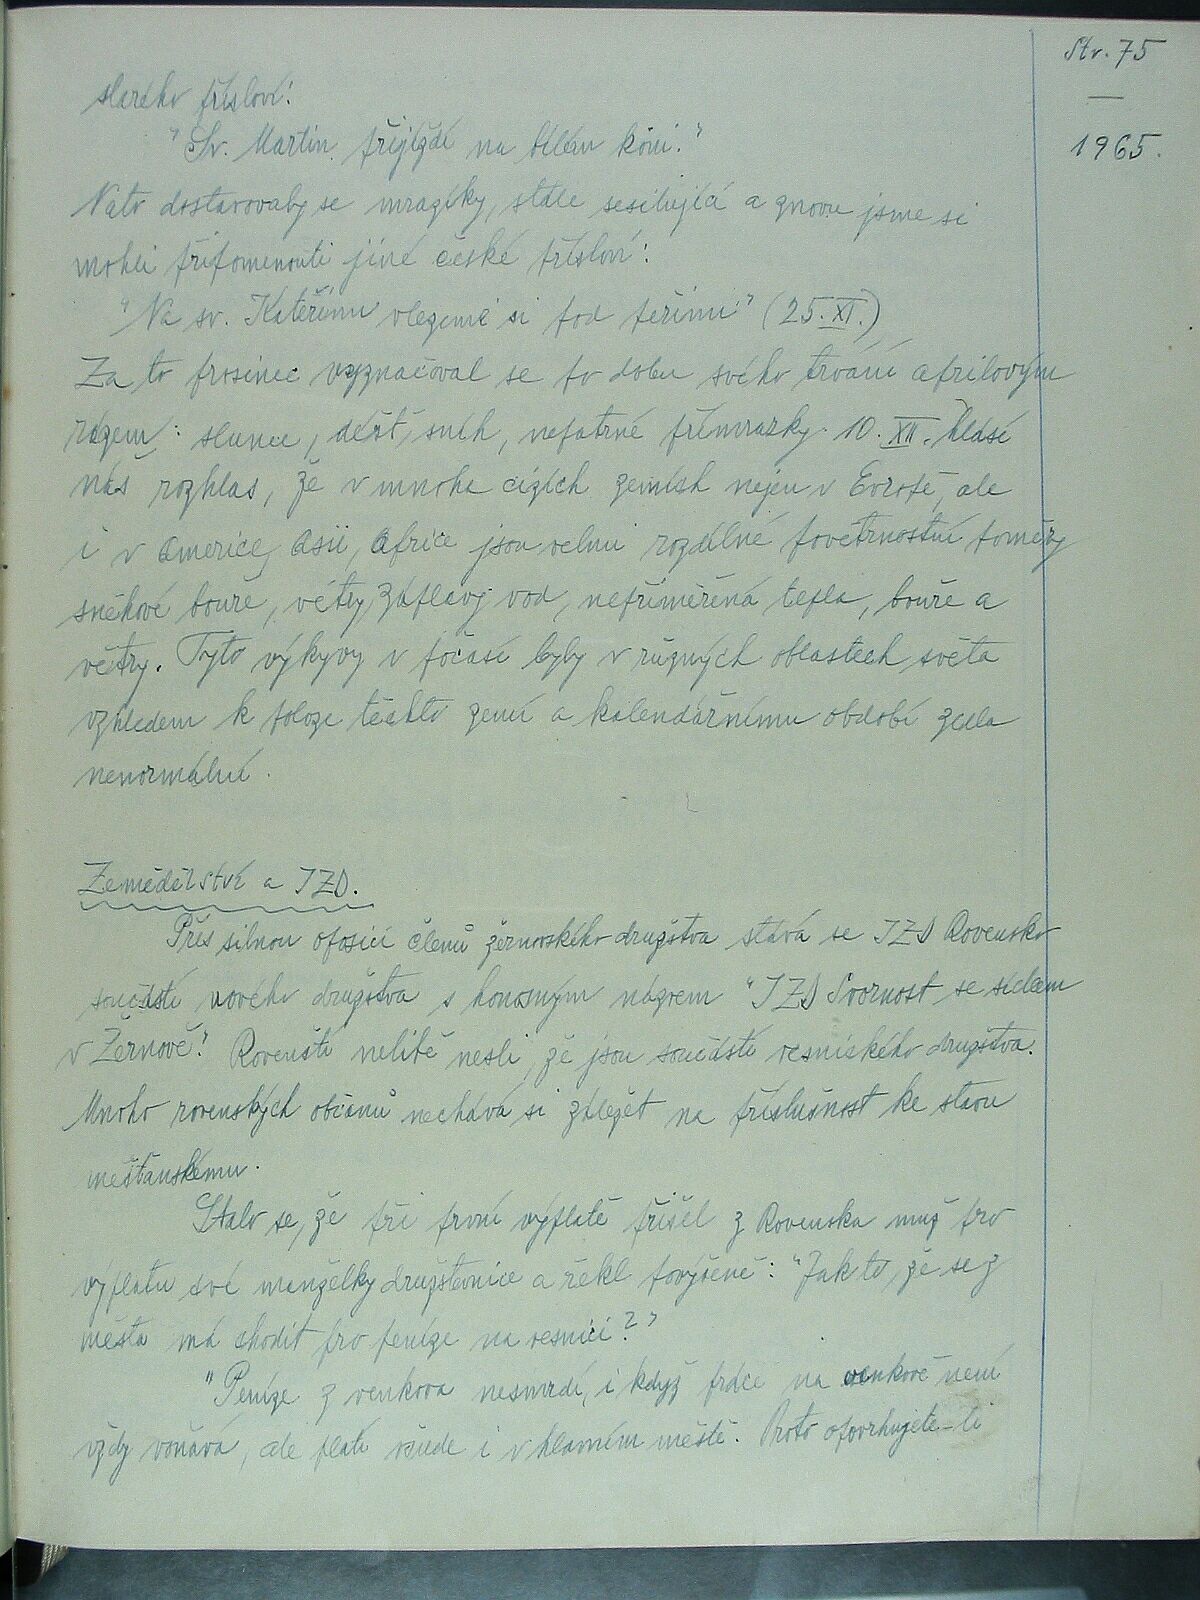 Str. 75
—
1965.
starého přísloví:
"Sv. Martin přijíždí na bílém koni."
Nato dostavovaly se mrazíky, stále sesilující a znovu jsme si
mohli připomenouti jiné české přísloví:
"Na sv. Kateřinu vlezeme si pod peřinu" (25. XI.)
Za to prosinec vyznačoval se po dobu svého trvání aprilovým
rázem: slunce, déšť, sníh, nepatrné přímrazky. 10. XII. hlásí
náš rozhlas, že v mnoha cizích zemích nejen v Evropě, ale
i v Americe, Asii, Africe jsou velmi rozdílné povětrnostní poměry
sněhové bouře, větry, záplavy vod, nepřiměřená tepla, bouře a
větry. Tyto výkyvy v počasí byly v různých oblastech světa
vzhledem k poloze těchto zemí a kalendářnímu období zcela
nenormální.
Zemědělství a JZD.
Přes silnou oposici členů žernovského družstva stává se JZD Rovensko
součástí nového družstva s honosným názvem "JZD Svornost se sídlem
v Žernově." Rovenští nelibě nesli, že jsou součástí vesnického družstva.
Mnoho rovenských občanů nechává si záležet na příslušnost ke stavu
měšťanskému.
Stalo se, že při první výplatě přišel z Rovenska muž pro
výplatu své manželky družstevnice a řekl povýšeně: "Jak to, že se z
města má chodit pro peníze na vesnici?"
"Peníze z venkova nesmrdí, i když práce na venkově není
vždy voňavá, ale platí všude i v hlavním městě. Proto opovrhujete-li